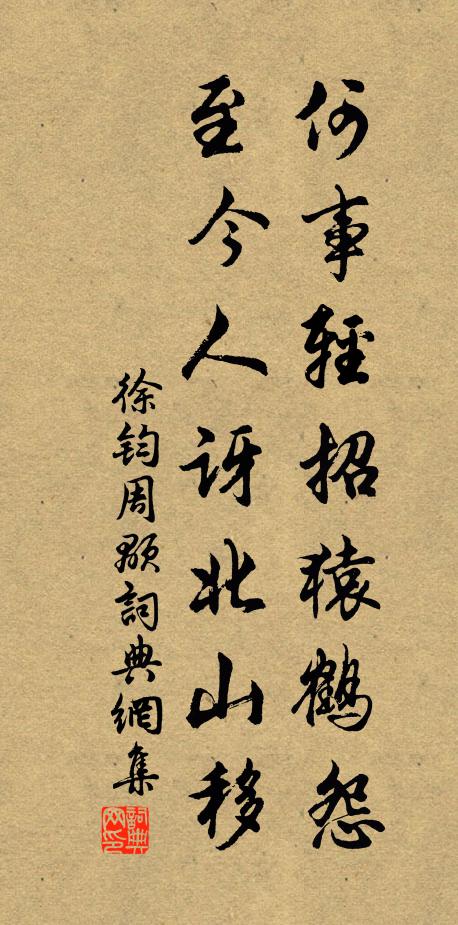 何事輕招猿鶴怨
至今人訝北山移
徐鈞周顒詞典網集
詞典網印